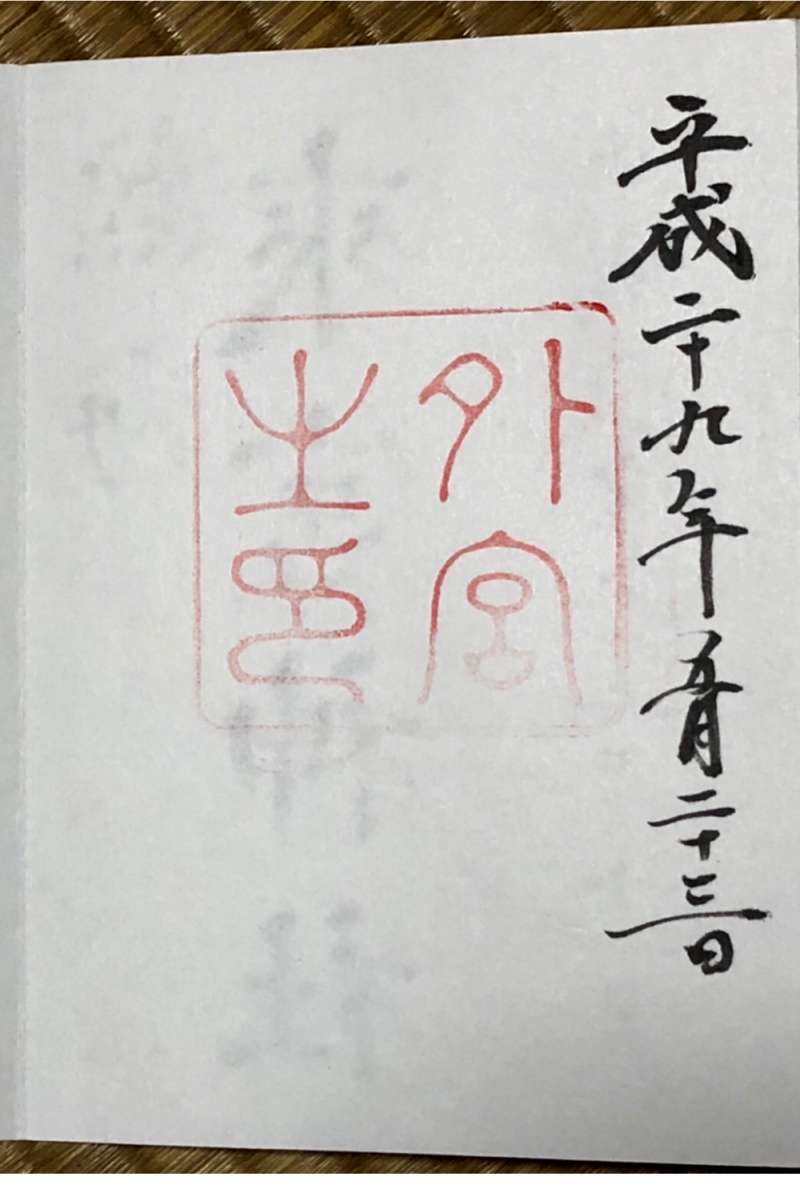 平成二十九年五月二十三日
外宮
之印